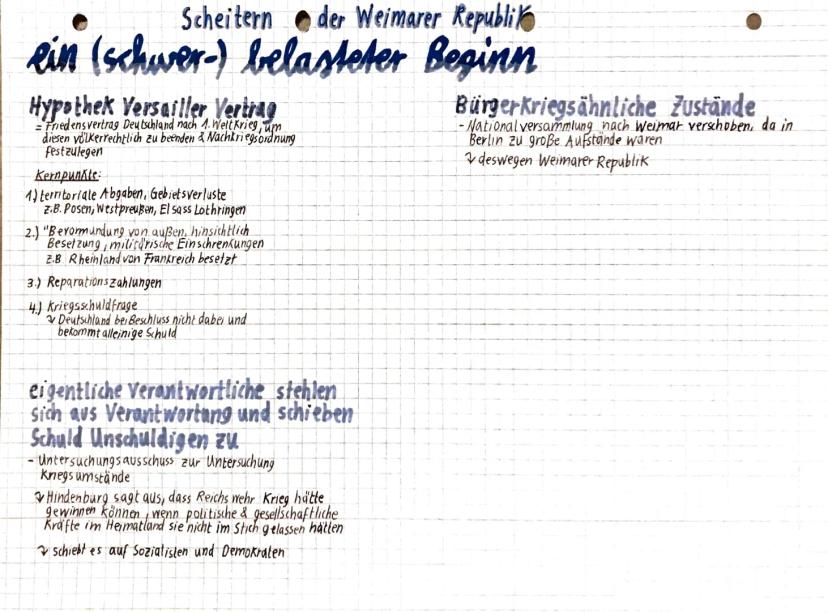 Scheitern der Weimarer Republik
ein (schwer-) belasteter Beginn
Hypothek Versailler Vertrag
= Friedensvertrag Deutschland nach 1. Weltkrieg, um
diesen völkerrechtlich zu beenden & Nachkriegsordnung
festzulegen
Kernpunkte:
1.) territoriale Abgaben, Gebietsverluste
z.B. Posen, Westpreußen, Elsass Lothringen
2.) "Bevormundung von außen, hinsichtlich
Besetzung, militärische Einschrenkungen
z.B. Rheinland von Frankreich besetzt
3.) Reparationszahlungen
4.) Kriegsschuldfrage
↳ Deutschland bei Beschluss nicht dabei und
bekommt alleinige Schuld
eigentliche Verantwortliche stehlen
sich aus Verantwortung und schieben
Schuld Unschuldigen zu
- Untersuchungsausschuss zur Untersuchung
Kriegsumstände
↳ Hindenburg sagt aus, dass Reichswehr Krieg hätte
gewinnen können, wenn politische & gesellschaftliche
Kräfte im Heimatland sie nicht im Stich gelassen hätten
↳ schiebt es auf Sozialisten und Demokraten
Bürgerkriegsähnliche Zustände
- Nationalversammlung nach Weimar verschoben, da in
Berlin zu große Aufstände waren
↳ deswegen Weimarer Republik